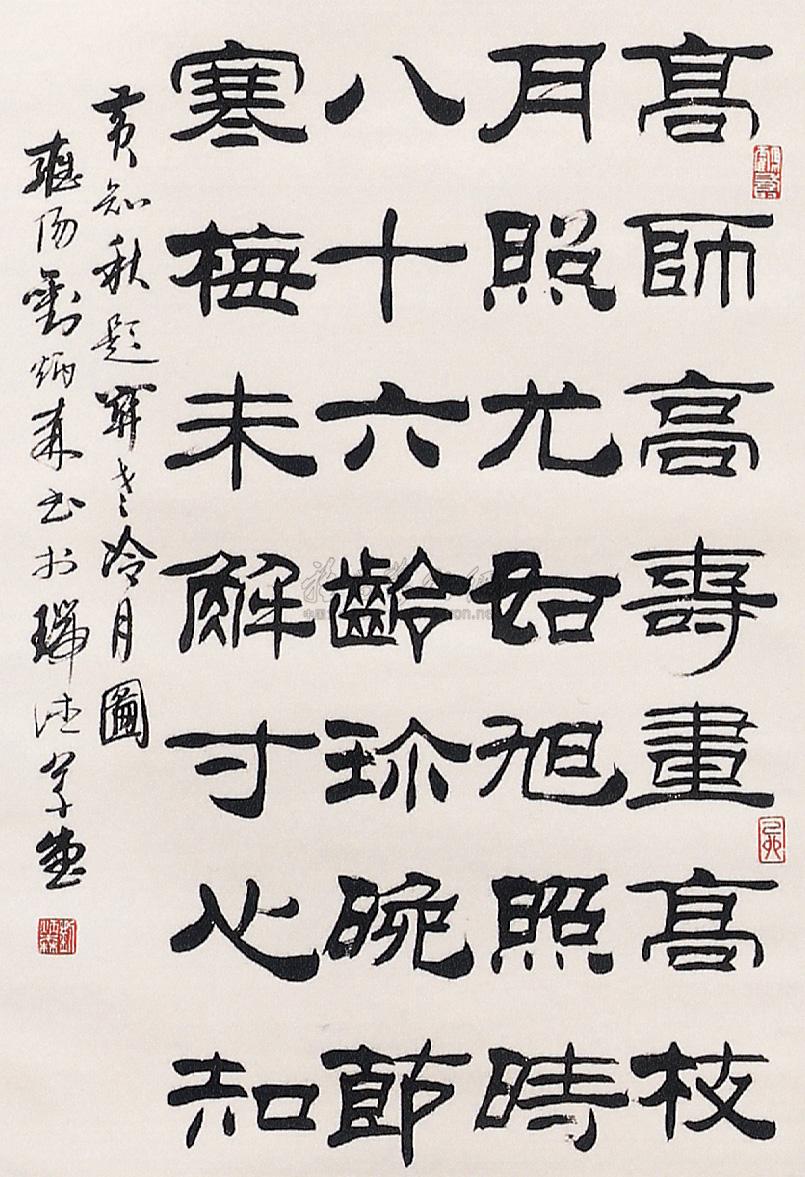 高師高壽畫高枝
月照尤如旭照時
八十六齡珍晚節
寒梅未解寸心知
黄知秋題寒香冷月圖
劉炳森書於